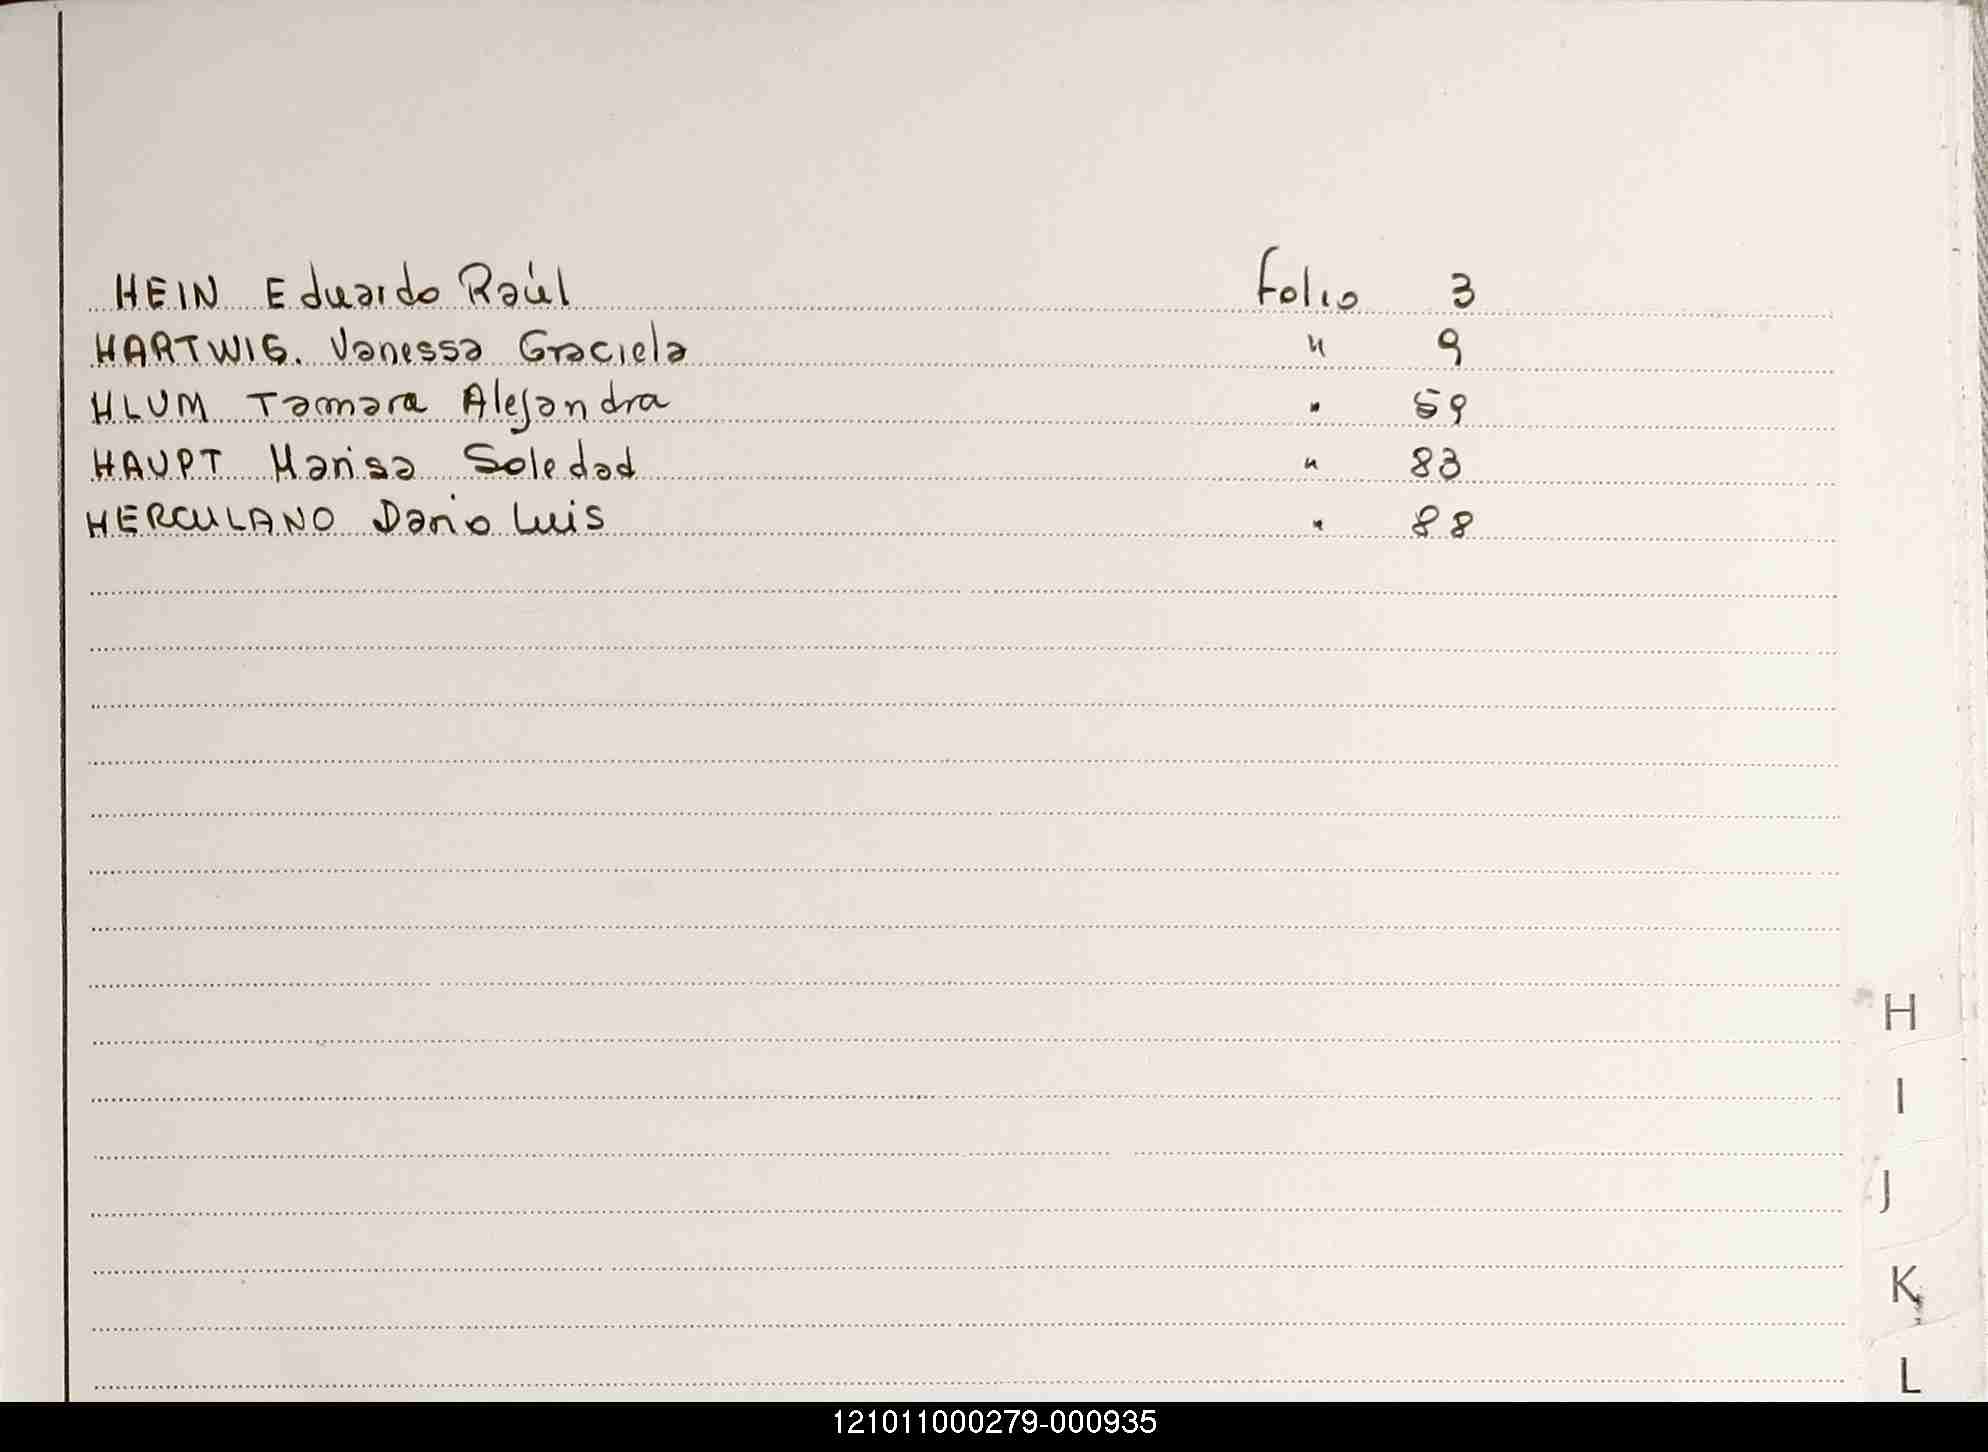 HEIN Eduardo Raúl Folio 3
HARTWIG. Vanessa Graciela " 9
HLUM Tamara Alejandra " 59
HAUPT Marisa Soledad " 83
HERCULANO Dario Luis " 88
H
I
J
K
L
121011000279-000935